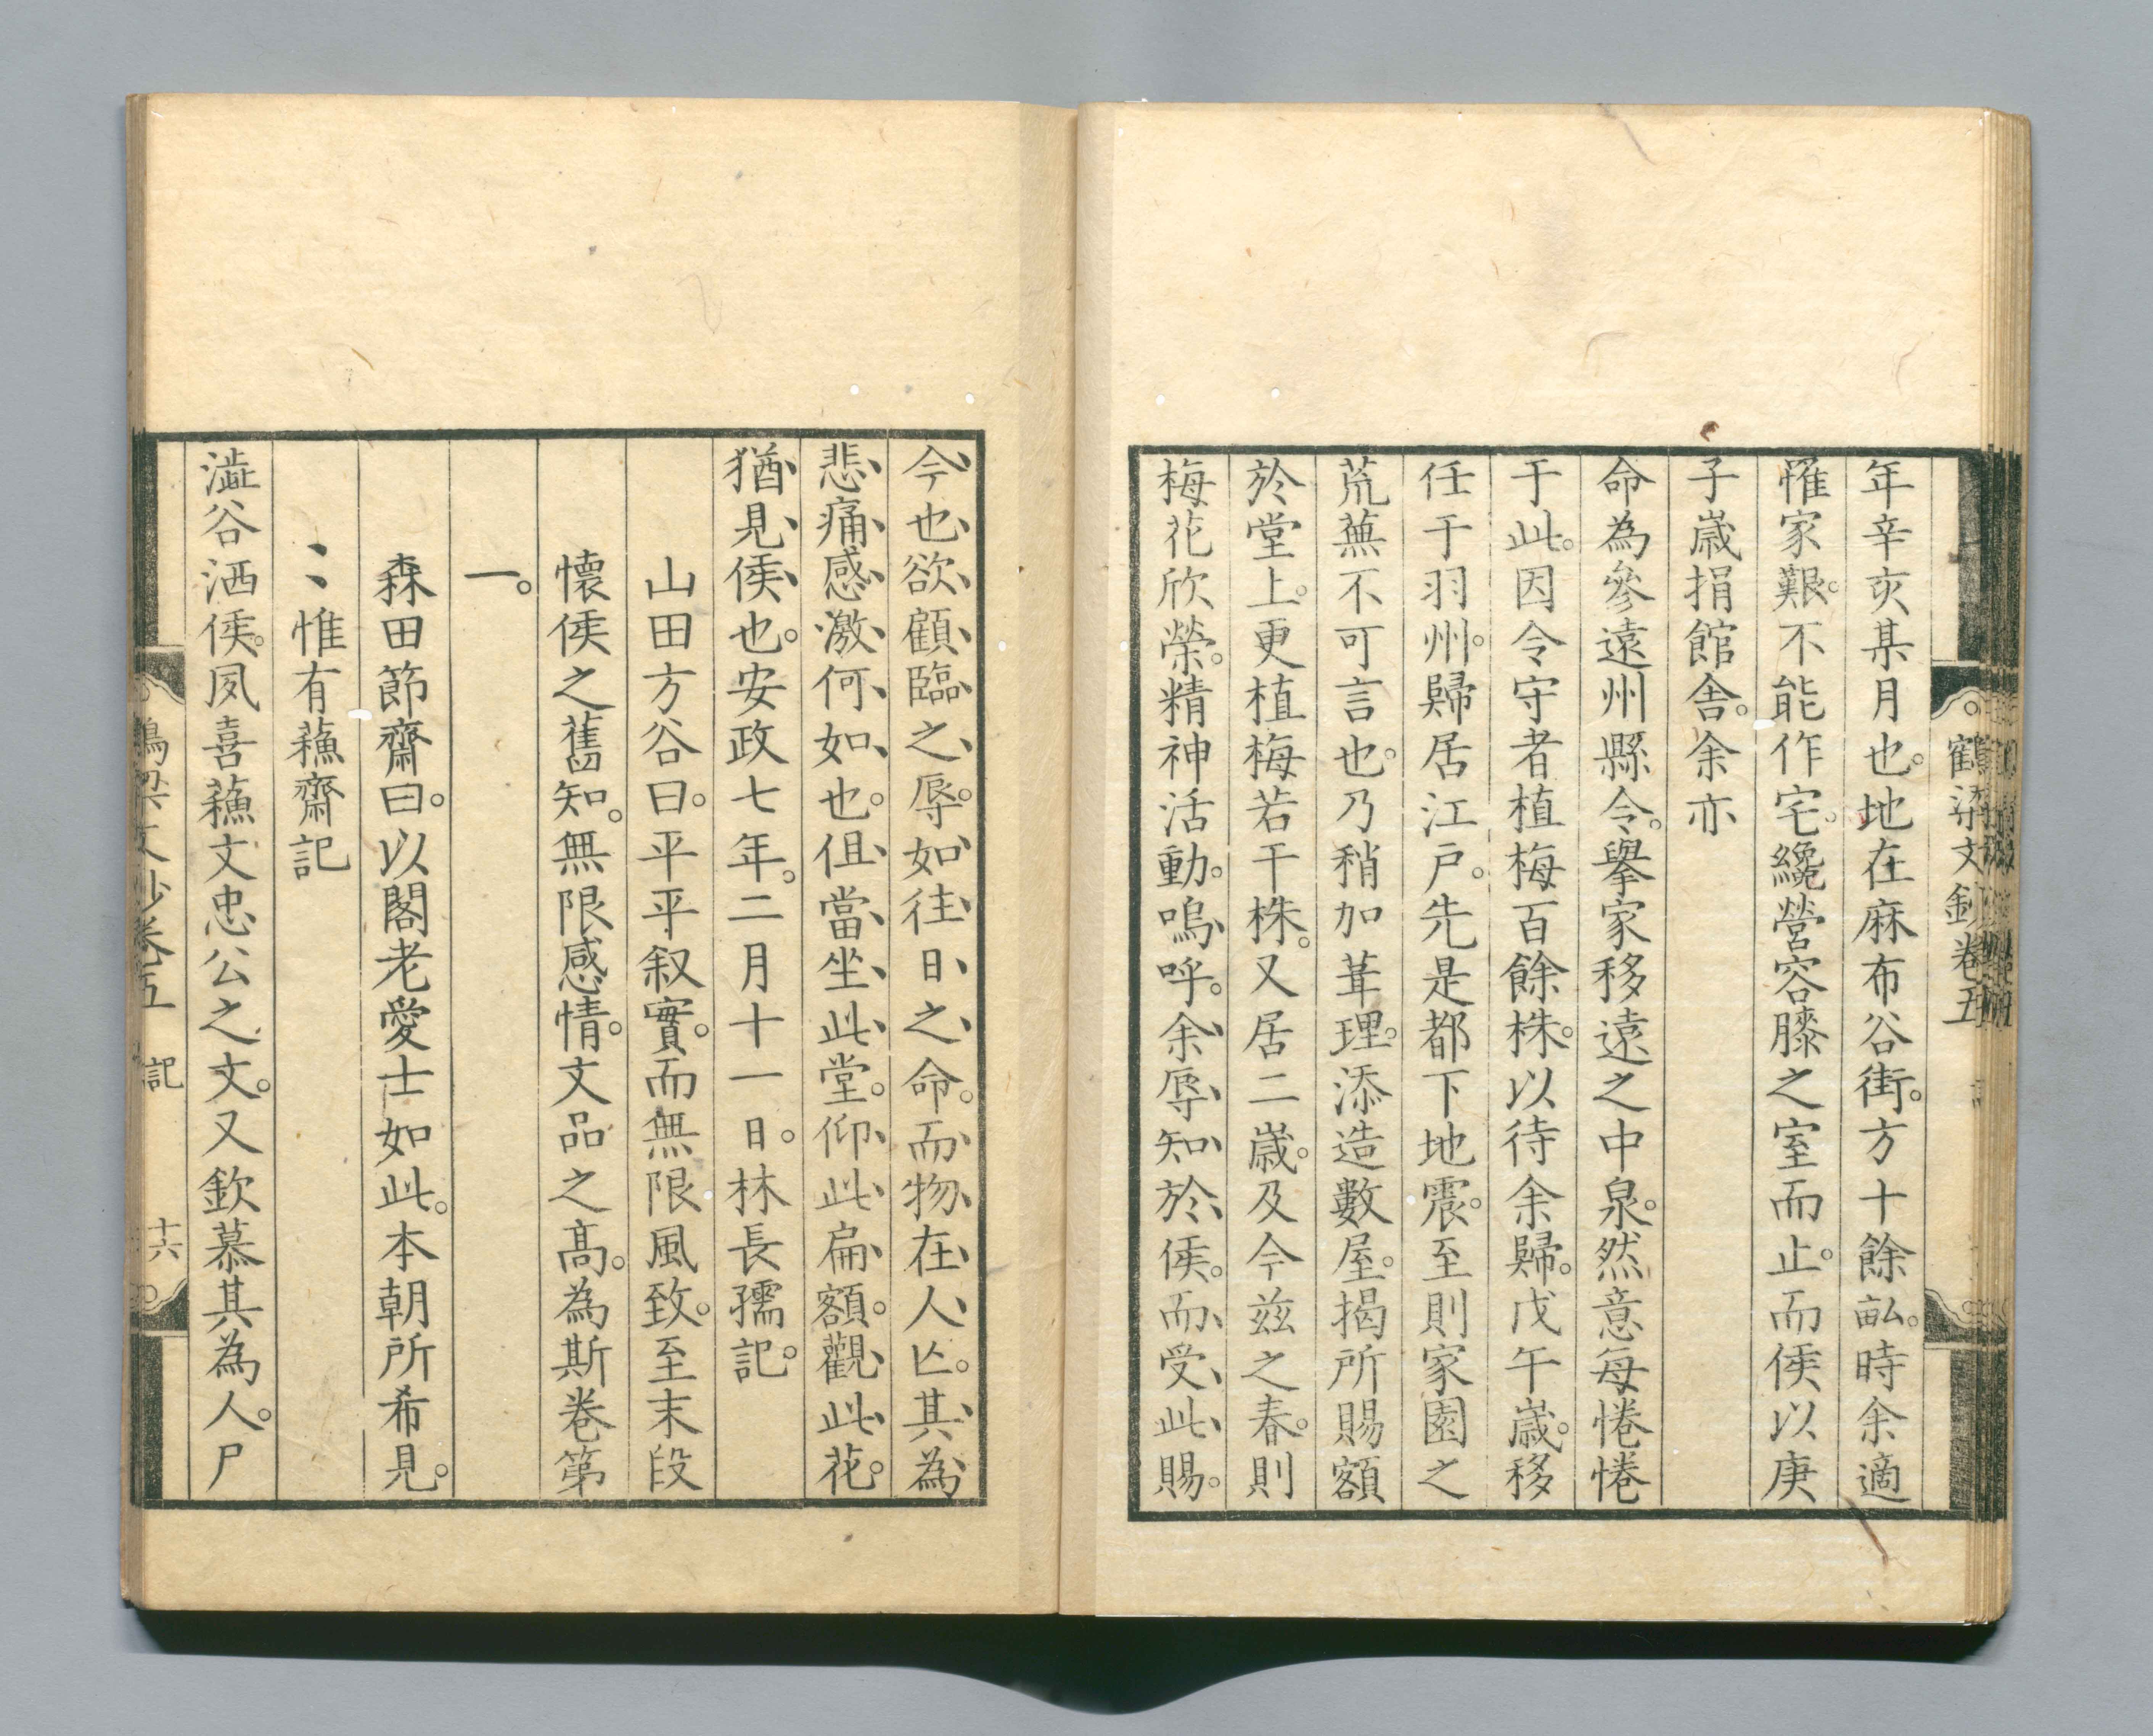 鶴梁文鈔卷五
年辛亥某月也。地在麻布谷街。方十餘畝。時余適
罹家艱。不能作宅。纔營容膝之室而止。而侯以庚
子歲捐館舍。余亦
命為參遠州縣令。擧家移遠之中泉。然意每惓惓
于此。因令守者植梅百餘株。以待余歸。戊午歲。移
任于羽州。歸居江戶。先是都下地震。至則家園之
荒蕪不可言也。乃稍加葺理。添造數屋。揭所賜額
於堂上。更植梅若干株。又居二歲。及今茲之春。則
梅花欣榮。精神活動。嗚呼。余辱知於侯。而受此賜。
今也欲顧臨之辱。如往日之命。而物在人亡。其為
悲痛感激何如也。但當坐此堂。仰此扁額。觀此花。
猶見侯也。安政七年。二月十一日。林長孺記。
山田方谷曰。平平叙實。而無限風致。至末段
懷侯之舊知。無限感情。文品之高。為斯卷第
一。
森田節齋曰。以閣老愛士如此。本朝所希見。
惟有蘓齋記
澁谷洒侯。夙喜蘓文忠公之文。文。又欽慕其為人。尸
鶴梁文鈔卷五 記 十六